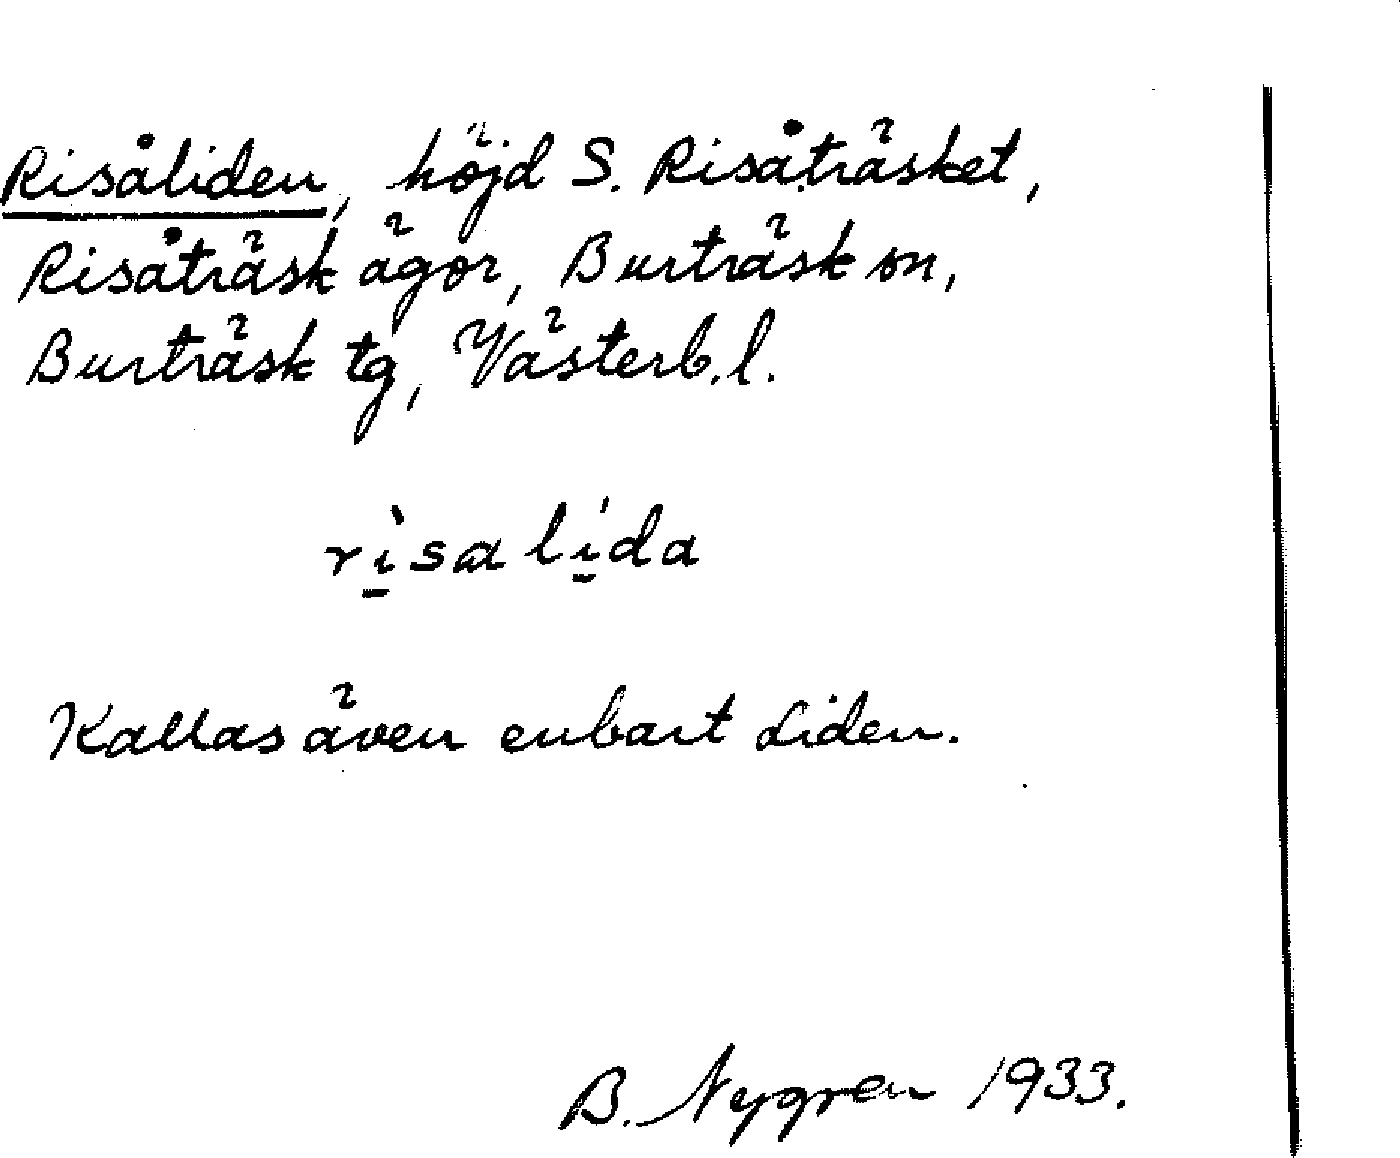 Risåliden, höjd S. Risåträsket,
Risåträsk ägor, Burträsk sn,
Burträsk tg, Västerb. l.
rı̱̀sa lı̱́da
Kallas även enbart Liden.
B. Nygren 1933.